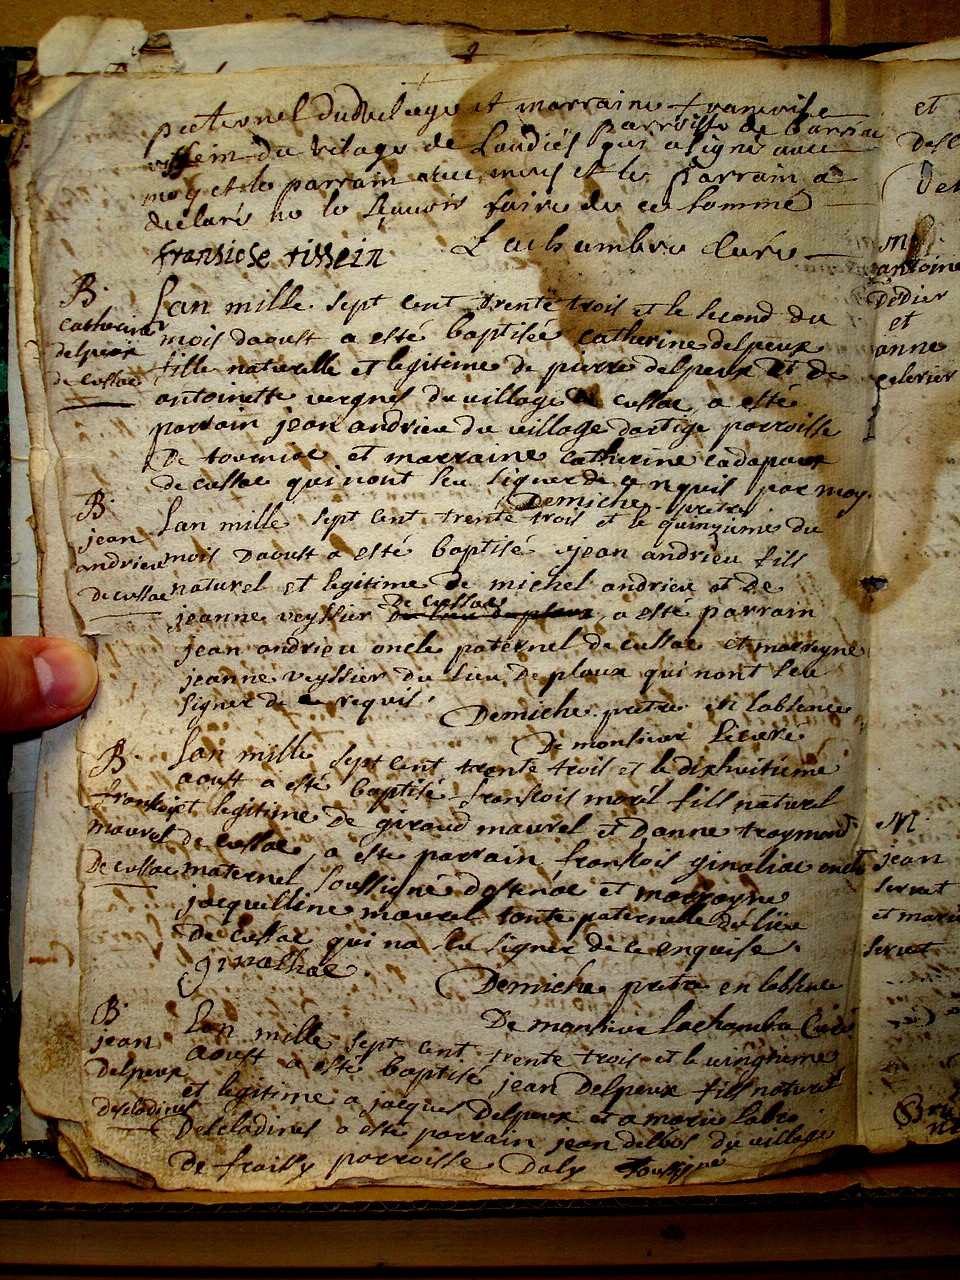 paternel du vilage et marraine francoise
tissein du vilage de Laudiés parroisse de barriac
qui a signé avec
moy et le parrain
declaré ne le sçavoir faire de ce sommé
fransiose tissein Lachambre Curé
B.
catherine
delpeux
de cussac
Lan mille sept cent trente trois et le second du
mois daoust a esté baptisée catherine delpeux
fille naturelle et legitime de pierre delpeux et de
antoinette vergnes du village de cussac, a esté
parrain jean andrieu du village dartige parroisse
de tourniac et marraine catherine cadapaux
de cussac qui nont seu signer de ce requis par moy.
Demiche pretre
B.
jean
andrieu
de cussac
Lan mille sept cent trente trois et le quinzieme du
mois daoust a esté baptisé jean andrieu fils
naturel et legitime de michel andrieu et de
jeanne veyssier de cussac a esté parrain
jean andrieu oncle paternel de cussac et marreyne
jeanne veyssier du lieu de plaux qui nont seu
signer de ce requis
Demiche pretre en labsence
De monsieur Le curé
B.
fransois
maurel
De cussac
Lan mille sept cent trente trois et le dixhuitieme
aoust a esté baptisé fransois morel fils naturel
et legitime De giraud maurel et Danne traymond
de cussac, a esté parrain fransois ginaliac oncle
maternel soussigné et marrayne
jacquelline maurel tante paternelle du lieu
De cussac qui na su signer de ce enquise.
Ginalhac.
Demiche pretre en labsence
De monsieur Lachambre Curé
B.
jean
Delpeux
descladines
Lan mille sept cent trente trois et le vingtieme
aoust a esté baptisé jean Delpeux fils naturel
et legitime a jacques Delpeux et a marie labro
Descladines a esté parrain jean delbos du village
De frailly parroisse Daly soussigné
et
M
antoine
Dodier
et
anne
celerier
M.
jean
servet
et marie
servet